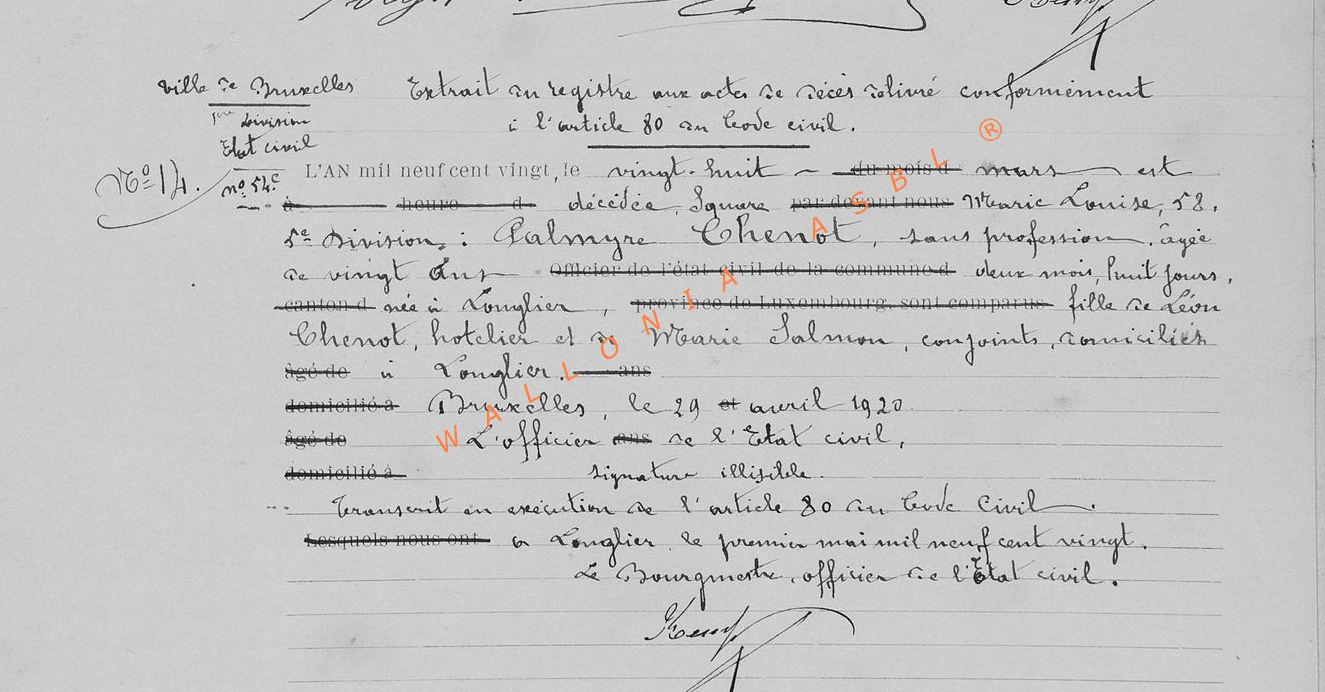 Ville de Bruxelles
1ère Division
Etat civil
Nº 14.
nº 54c
Extrait du registre aux actes de décès délivré conformément
à l'article 80 du Code civil.
L'AN mil neuf cent vingt, le vingt-huit du mois d mars est
à heure d décédée, Square par devant nous Marie Louise, 58,
5e Division : Palmyre Chenot, sans profession, âgée
de vingt ans Officier de l'état civil de la commune d deux mois, huit jours,
canton d née à Longlier, province de Luxembourg, sont comparus fille de Léon
Chenot, hotelier et de Marie Salmon, conjoints, domiciliés
âgé de à Longlier. ans
domicilié à Bruxelles, le 29 et avril 1920
âgé de L'officier ans de l'Etat civil,
domicilié à signature illisible.
Transcrit en exécution de l'article 80 du Code Civil.
Lesquels nous ont à Longlier le premier mai mil neuf cent vingt.
Le Bourgmestre, officier de l'Etat civil.
WALLONIA ASBL ®